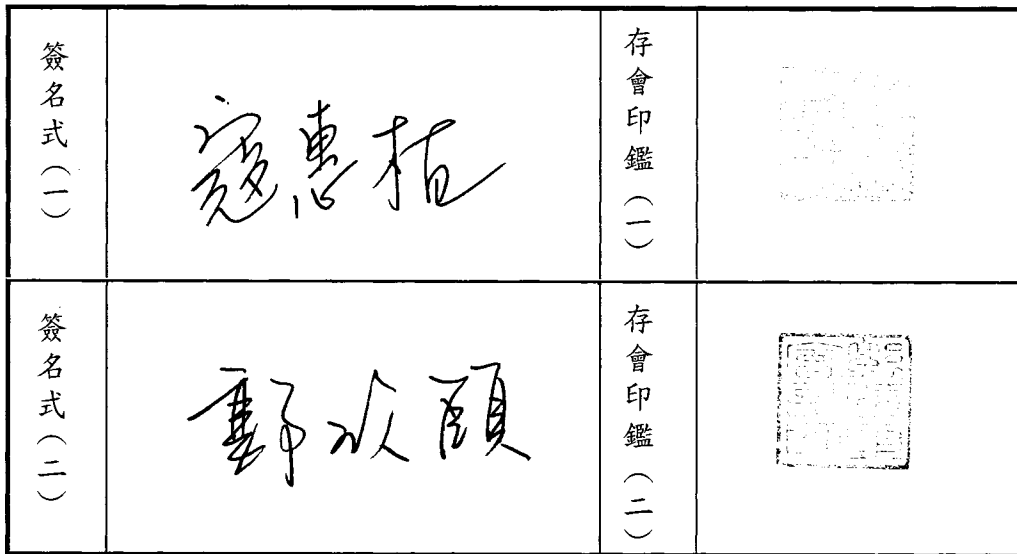 簽名式(一)
寇惠植
存會印鑑(一)
簽名式(二)
郭欣頤
存會印鑑(二)